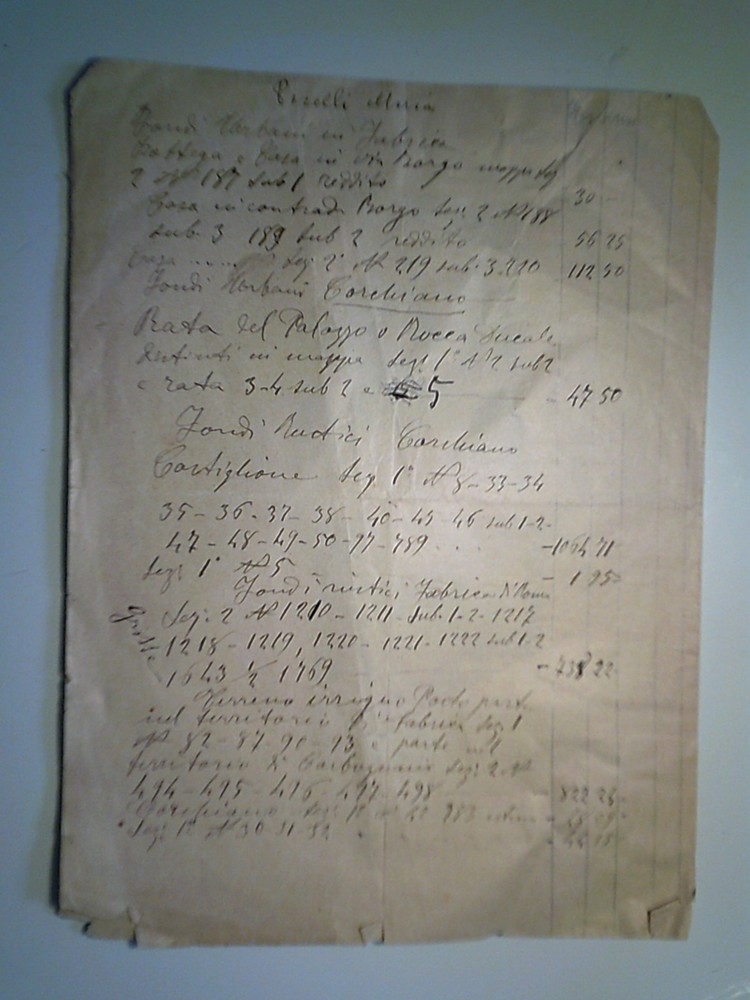 Fondi Urbani in Fabrica
Bottega e Casa in Via Borgo mappa
2 N° 187 sub 1 reddito 30
Casa in contrada Borgo Sez. 2 N° 188
sub. 3 189 sub 2 reddito 56 25
Casa Sez. 2° N° 219 sub. 3. 220 112 50
Fondi Urbani Corchiano
Rata del Palazzo o Rocca Ducale
distinti in mappa Sez. 1° N° 2 sub 2
e rata 3-4 sub 2 e 5 47 50
Fondi Rustici Corchiano
Castiglione Sez. 1° N° 8-33-34
35-36-37-38-40-45-46 sub 1-2-
47-48-49-50-77-789 1064 71
Sez. 1° N° 5 1 95
Fondi rustici Fabrica di Roma
Sez. 2 N° 1210-1211-sub. 1-2-1217
1218-1219, 1220-1221-1222 sub 1-2
1643 1/2 1769 738 22
Terreno irriguo parte
nel territorio di Fabrica Sez. 1
N° 82-87-90-93 e parte nel
territorio di Carbognano Sez. 2 N°
494-495-496-497-498 822 24
Corchiano Sez. 1° N° 983
Sez. 1° N° 30-31-32